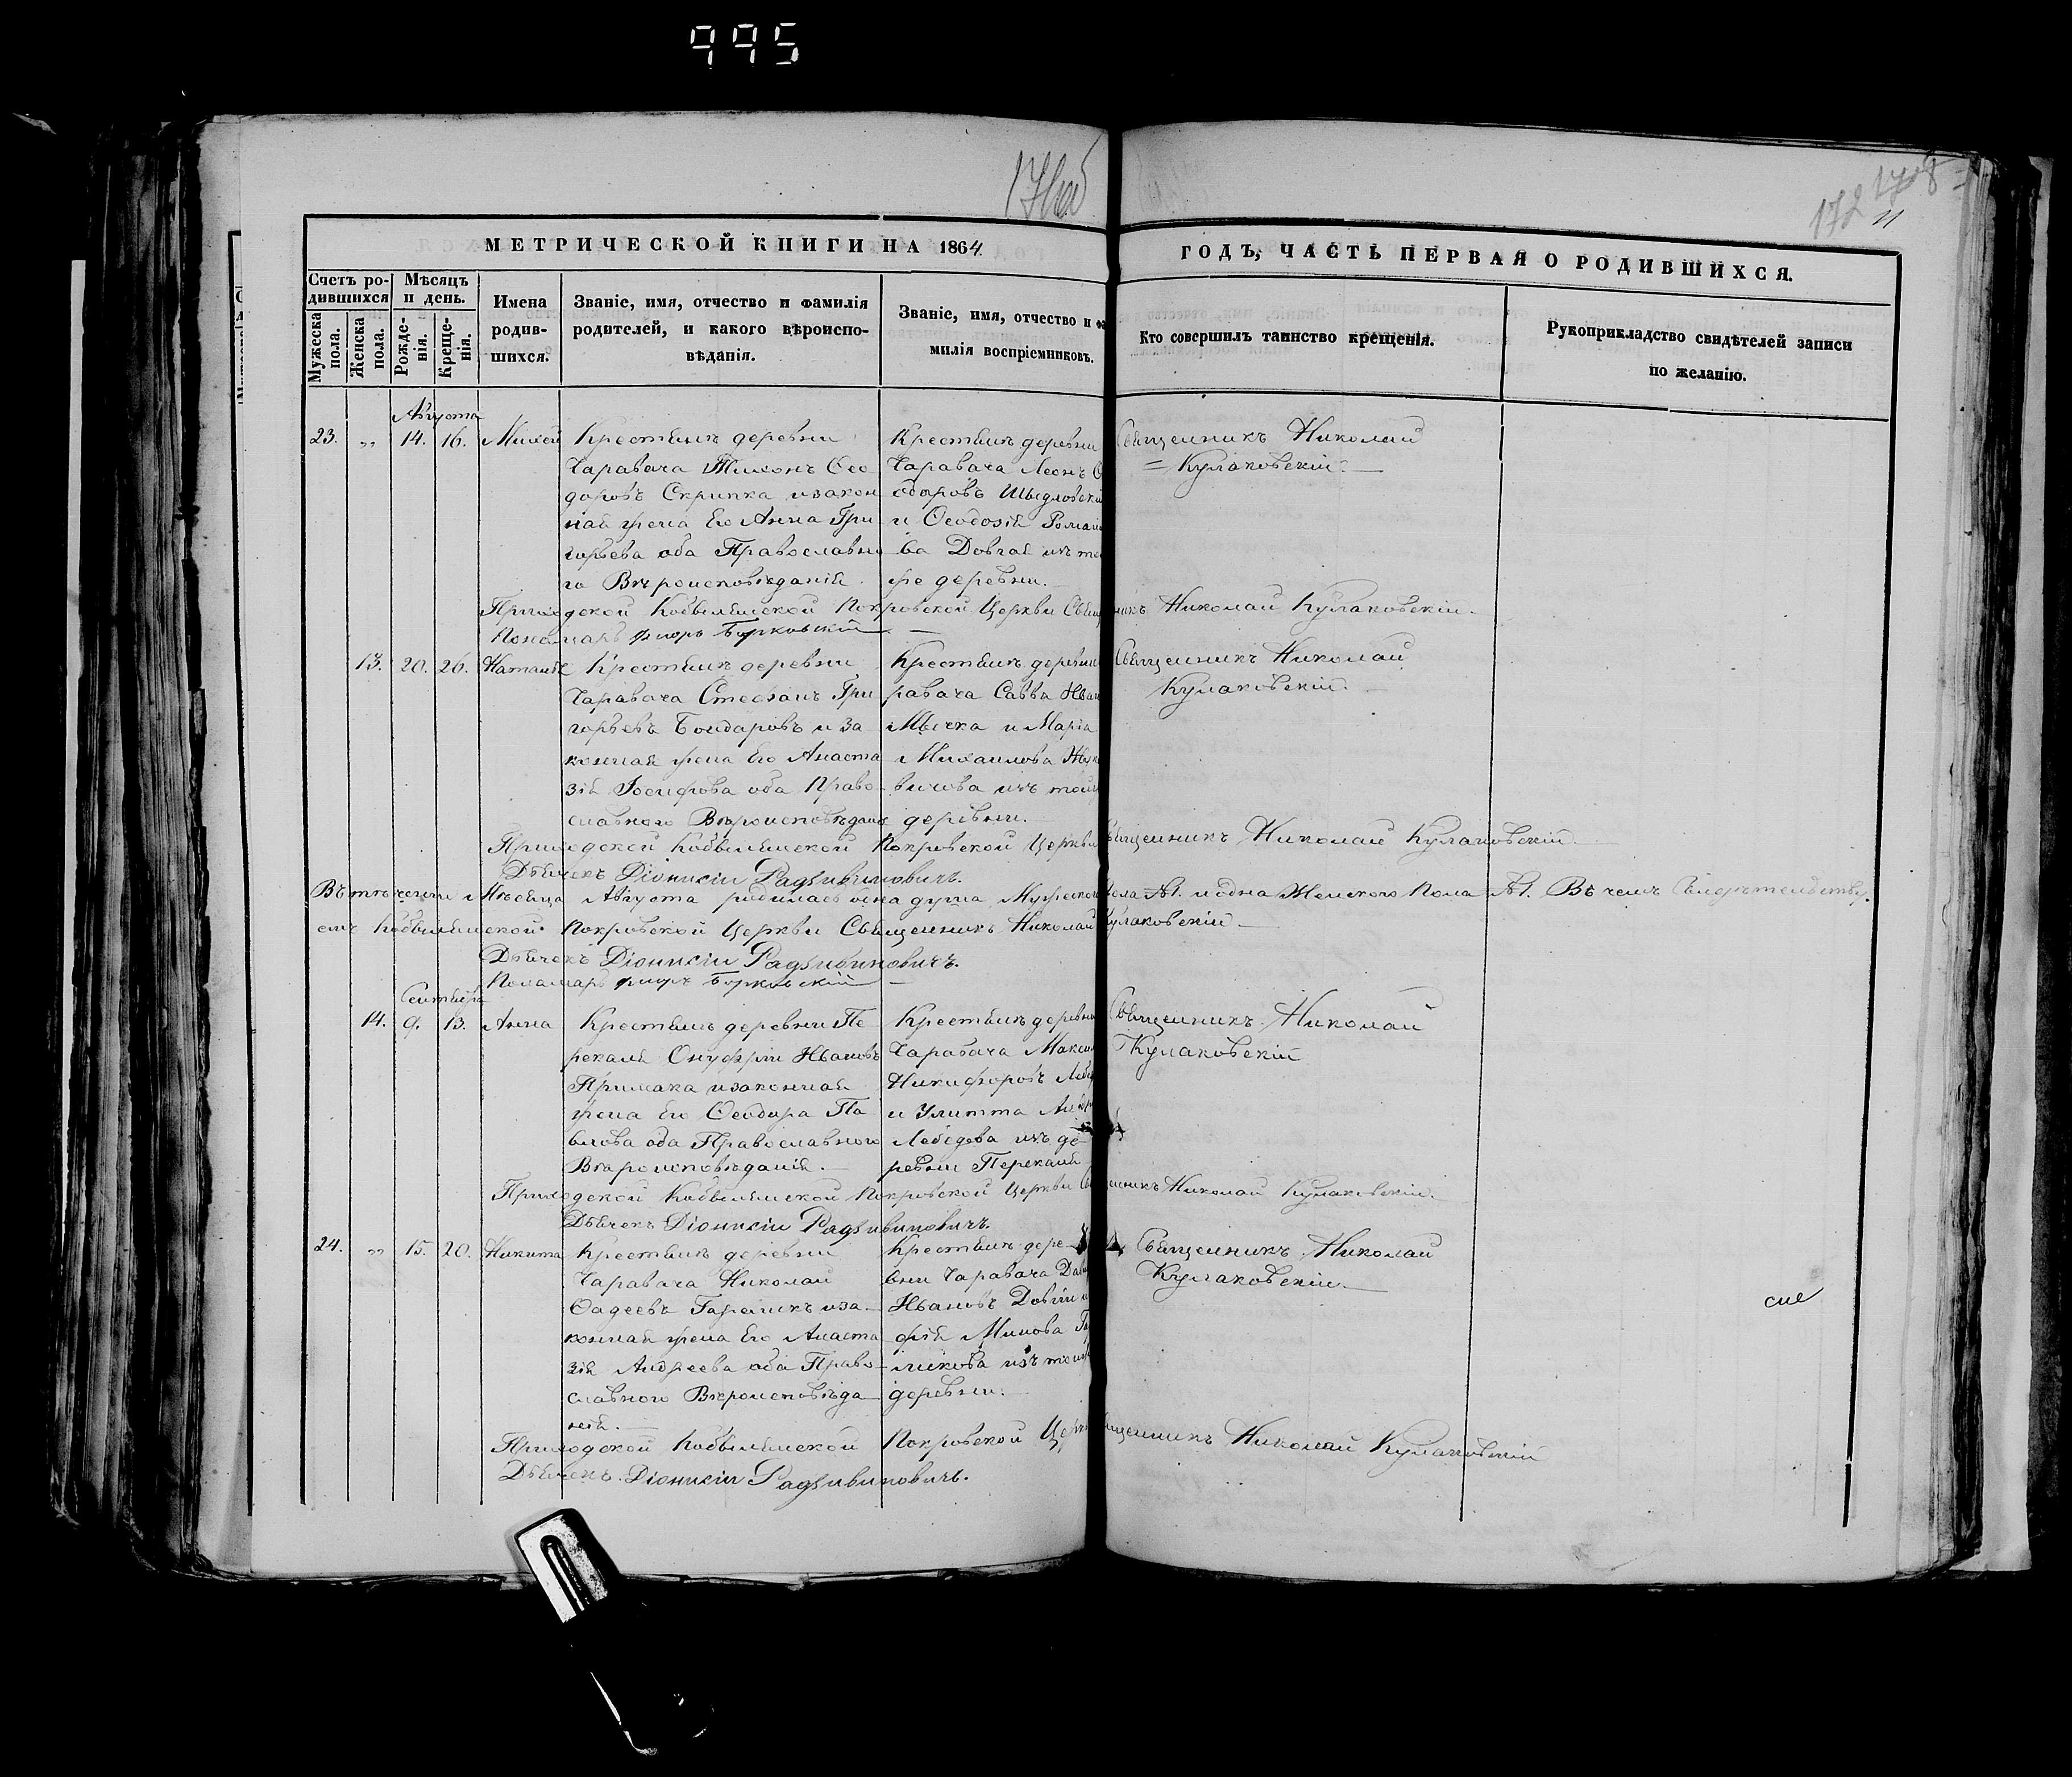 995
172
11
МЕТРИЧЕСКОЙ КНИГИ НА 1864. ГОДЪ, ЧАСТЬ ПЕРВАЯ О РОДИВШИХСЯ.
Счетъ родившихся
Мужеска пола.
Женска пола.
Мѣсяцъ и день.
Рожденія.
Крещенія.
Имена родившихся.
Званіе, имя, отчество и фамилія
родителей, и какого вѣроиспо-
вѣданія.
Званіе, имя, отчество и фа
милія воспріемниковъ.
Кто совершилъ таинство крещенія.
Рукоприкладство свидѣтелей записи
по желанію.
Августа
23. „ 14. 16. Михей
Крестьянъ деревни
Чаравача Тихонъ Ѳео
доровъ Скрипка и закон
ная жена Его Анна Гри
горьева оба Православно
го Вѣроисповѣданія.
Крестьянъ деревни
Чаравача Леонъ
одоровъ
и Ѳеодосія
ва Довгая изъ
же деревни.
Священникъ Николай
Кулаковскій.
Приходской Кобылянской Покровской Церкви Священникъ Николай Кулаковскій.
Пономарь Борковскій
13. 20. 26. Наталія
Крестьянъ деревни
Чаравача Стефанъ Гри
горьевъ Бондаровъ и за
конная жена Его Анаста
зія Іосифова оба Право-
славного Вѣроисповѣданія
Крестьянъ деревни
равача Савва
и Марія
Михаилова
вичова изъ той
деревни.
Священникъ Николай
Кулаковскій.
Приходской Кобылянской Покровской Церкви Священникъ Николай Кулаковскій.
Дьячекъ Діонисій Радзивиновичъ.
Въ теченіи Мѣсяца Августа родилась одна душа Мужеского Пола №1. и одна Женского Пола №1. Въ чемъ Свидѣтельству.
емъ Кобылянской Покровской Церкви Священникъ Николай Кулаковскій
Дьячекъ Діонисій Радзивиновичъ.
Пономарь Борковскій
Сентября
14. 9. 13. Анна
Крестьянъ деревни Пе
рекаля Онуфрій Ивановъ
Примака и законная
жена Его Ѳеодора Па
влова оба Православного
Вѣроисповѣданія.
Крестьянъ деревни
Чаравача
Никифоровъ
и Улитта
Лебедева изъ де
ревни Перекаля
Священникъ Николай
Кулаковскій
Приходской Кобылянской Покровской Церкви Священникъ Николай Кулаковскій.
Дьячекъ Діонисій Радзивиновичъ.
24. „ 15. 20. Никита
Крестьянъ деревни
Чаравача Николай
Ѳадеевъ и за
конная жена Его Анаста
зія Андреева оба Право-
славного Вѣроисповѣда
нія.
Крестьянъ дере
вни Чаравача
Ивановъ Довгій
фія
изъ той
деревни.
Священникъ Николай
Кулаковскій.
Приходской Кобылянской Покровской Церкви Священникъ Николай Кулаковскій
Дьячекъ Діонисій Радзивиновичъ.